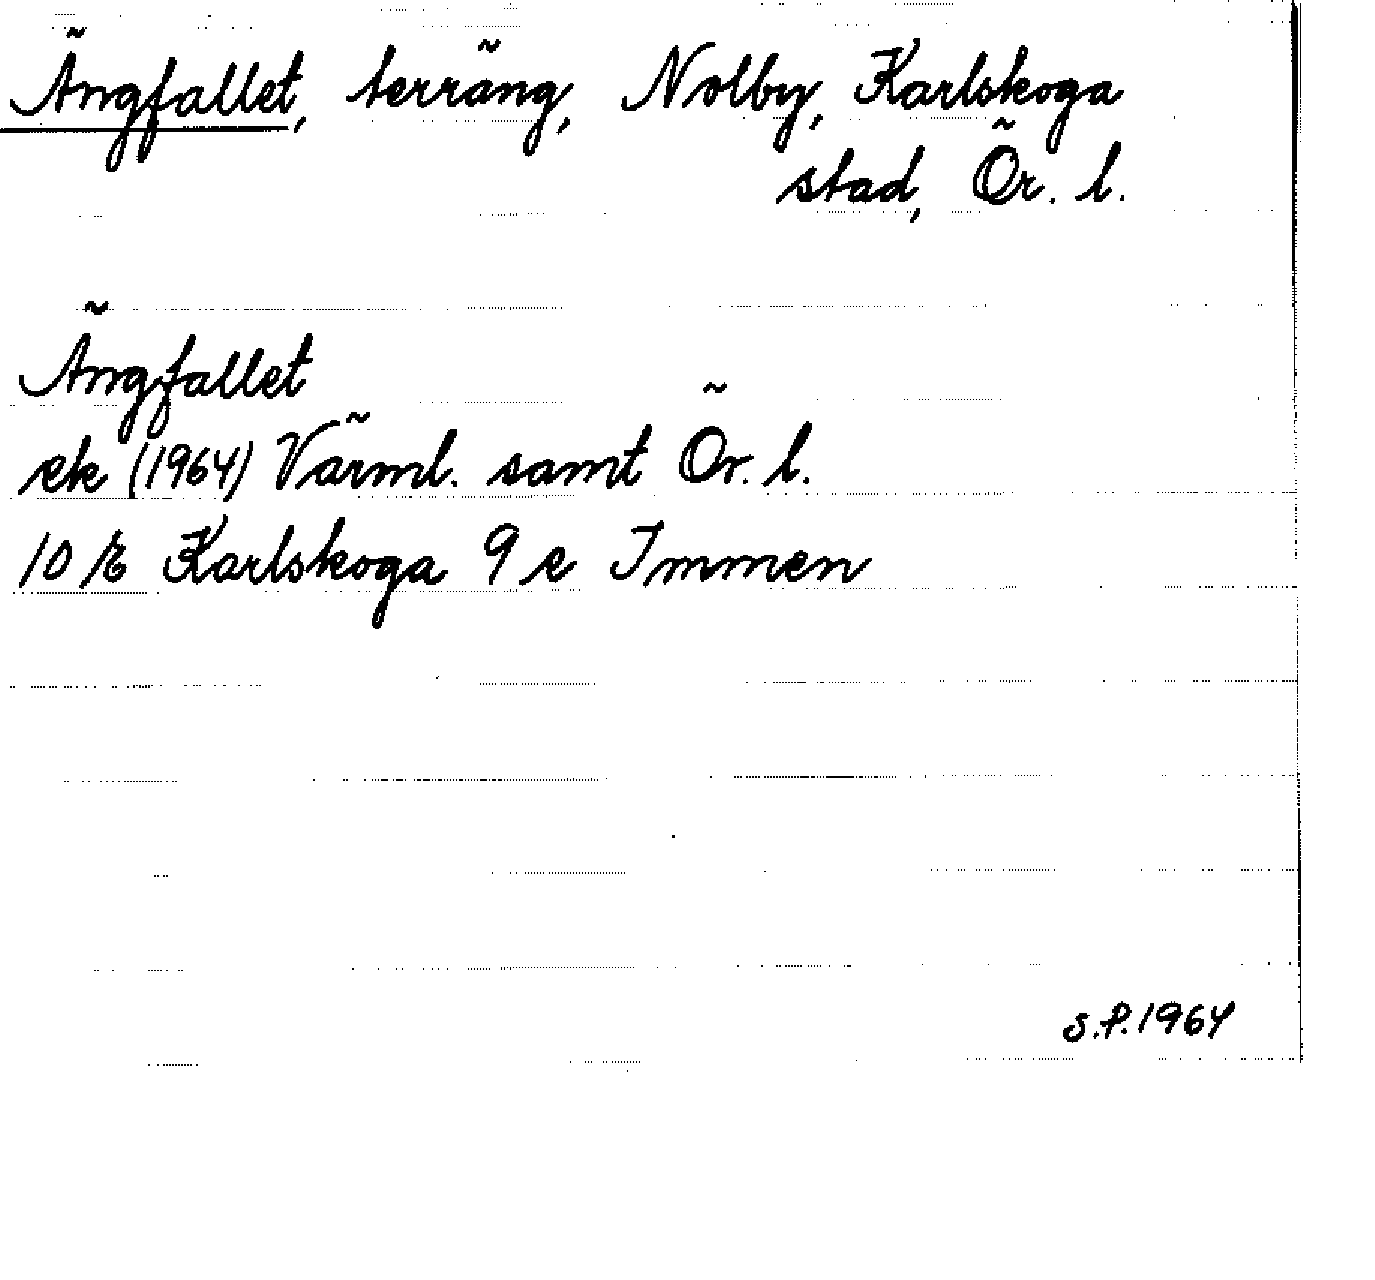 Ängfallet, terräng, Nolby, Karlskoga
stad, Ör. l.
Ängfallet
ek (1964) Värml. samt Ör. l.
10 E Karlskoga 9 e Immen
S.F. 1964